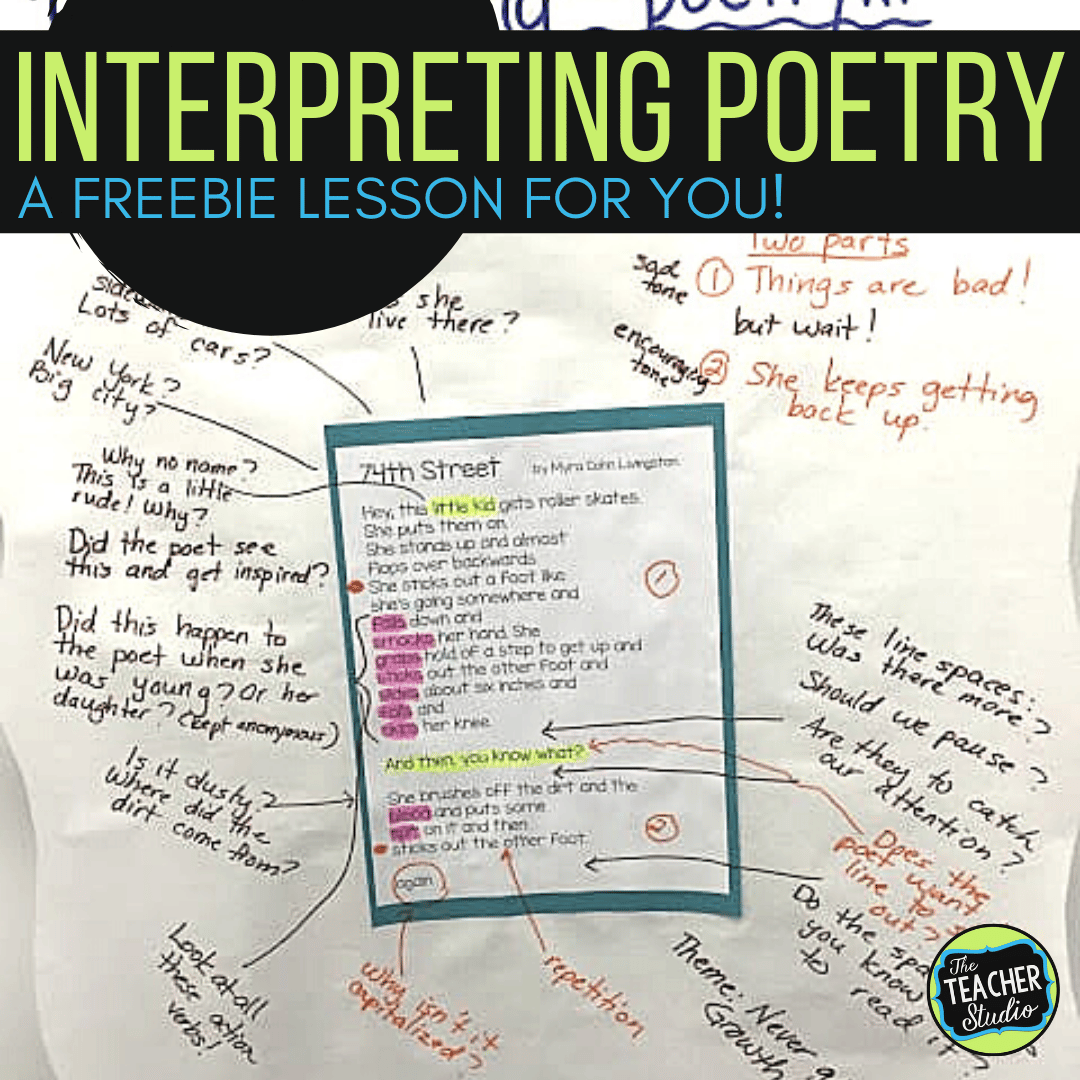 INTERPRETING POETRY
A FREEBIE LESSON FOR YOU!
Lots of
cars?
she
live there?
New York?
Big city?
Why no name?
This is a little
rude! Why?
Did the poet see
this and get inspired?
Did this happen to
the poet when she
was young? Or her
daughter? (kept anonymous)
Is it dusty?
Where did the
dirt come from?
Look at all
these action
verbs!
Two parts
sad
tone
① Things are bad!
but wait!
encouraging
tone
② She keeps getting
back up.
74th Street by Myra Cohn Livingston
Hey, this little kid gets roller skates.
She puts them on.
She stands up and almost
flops over backwards.
She sticks out a foot like
she's going somewhere and
falls down and
smacks her hand. She
grabs hold of a step to get up and
sticks out the other foot and
slides about six inches and
falls and
skins her knee.
①
And then, you know what?
She brushes off the dirt and the
blood and puts some
spit on it and then
sticks out the other foot.
②
again.
These line spaces:
Was there more?
Should we pause?
Are they to catch
our attention?
Does the
poet want
line to
out?
Do the
you know
to read it?
Why isn't it
capitalized?
repetition
Theme: Never
Growth
The
TEACHER
Studio